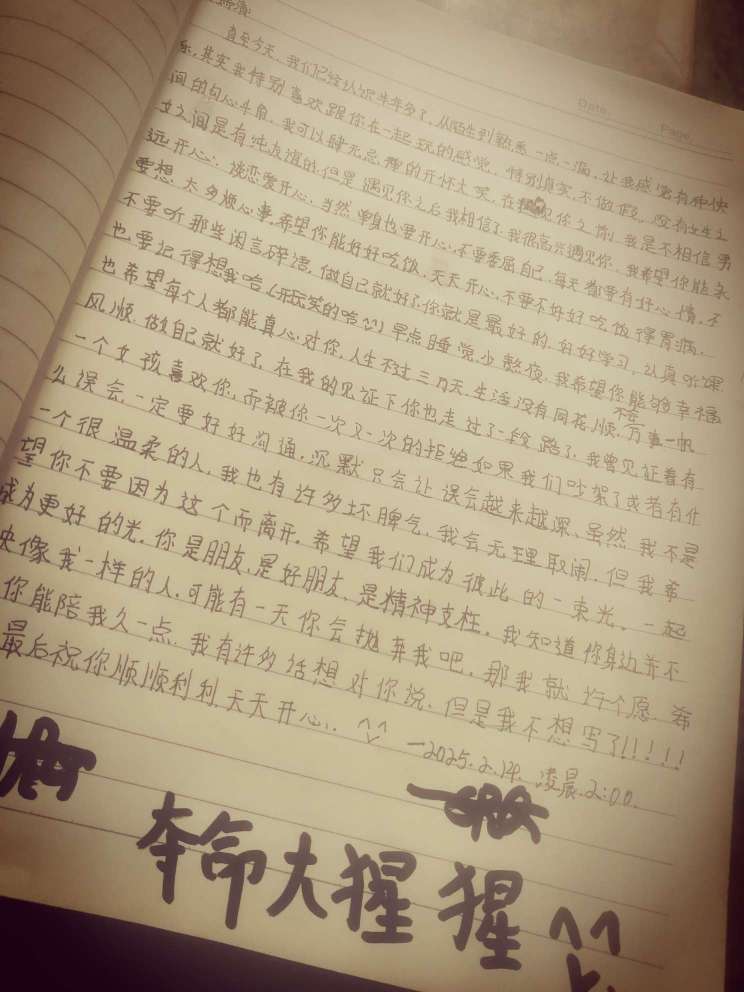 Date. Page.
直至今天,我们已经认识半年多了,从陌生到熟悉一点一滴,让我感觉有种快
乐,其实我特别喜欢跟你在一起玩的感觉,特别真实,不做假,没有女生之
间的勾心斗角,我可以肆无忌惮的开怀大笑,在遇见你之前,我是不相信男
女之间是有纯友谊的,但是遇见你之后我相信了,我很高兴遇见你,我希望你能永
远开心,谈恋爱开心,当然单身也要开心,不要委屈自己,每天都要有好心情,不
要想太多烦心事,希望你能好好吃饭,天天开心,不要不好好吃饭得胃病,
不要听那些闲言碎语,做自己就好了你就是最好的,好好学习,认真听课
也要记得想我哈(开玩笑的哈^^)早点睡觉,少熬夜,我希望你能够幸福
也希望每个人都能真心对你,人生不过三万天,生活没有同花顺,万事一帆
风顺,做自己就好了,在我的见证下你也走过了一段路了,我曾见证着有
一个女孩喜欢你,而被你一次又一次的拒绝如果我们吵架了或者有什
么误会一定要好好沟通,沉默只会让误会越来越深、虽然我不是
一个很温柔的人,我也有许多坏脾气,我会无理取闹,但我希
望你不要因为这个而离开,希望我们成为彼此的一束光,一起
成为更好的光,你是朋友,是好朋友,是精神支柱,我知道你身边并不
缺像我一样的人,可能有一天你会抛弃我吧,那我就许个愿,希
你能陪我久一点,我有许多话想对你说,但是我不想写了!!!!!
最后祝你顺顺利利,天天开心,^^
—2025.2.14.凌晨.2:00.
夺命大猩猩^^